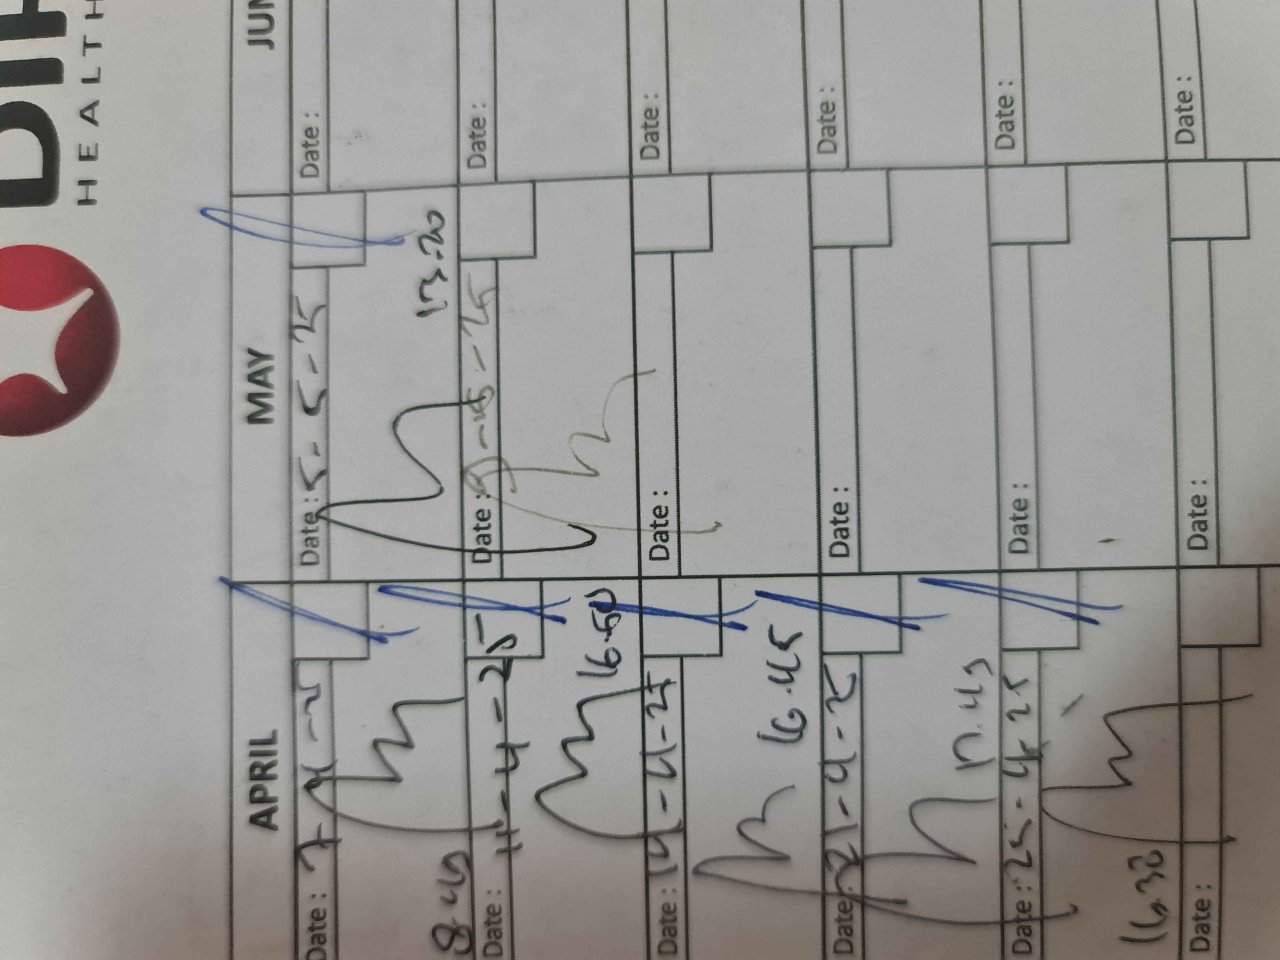 HEALTH
APRIL
MAY
JUN
Date : 7-4-25
Date : 5-5-25
Date :
8.45
13.20
Date : 11-4-25
Date : 9-5-25
Date :
16.50
Date : 14-4-25
Date :
Date :
16.45
Date : 21-4-25
Date :
Date :
Date : 25-4-25
Date :
Date :
16.30
Date :
Date :
Date :